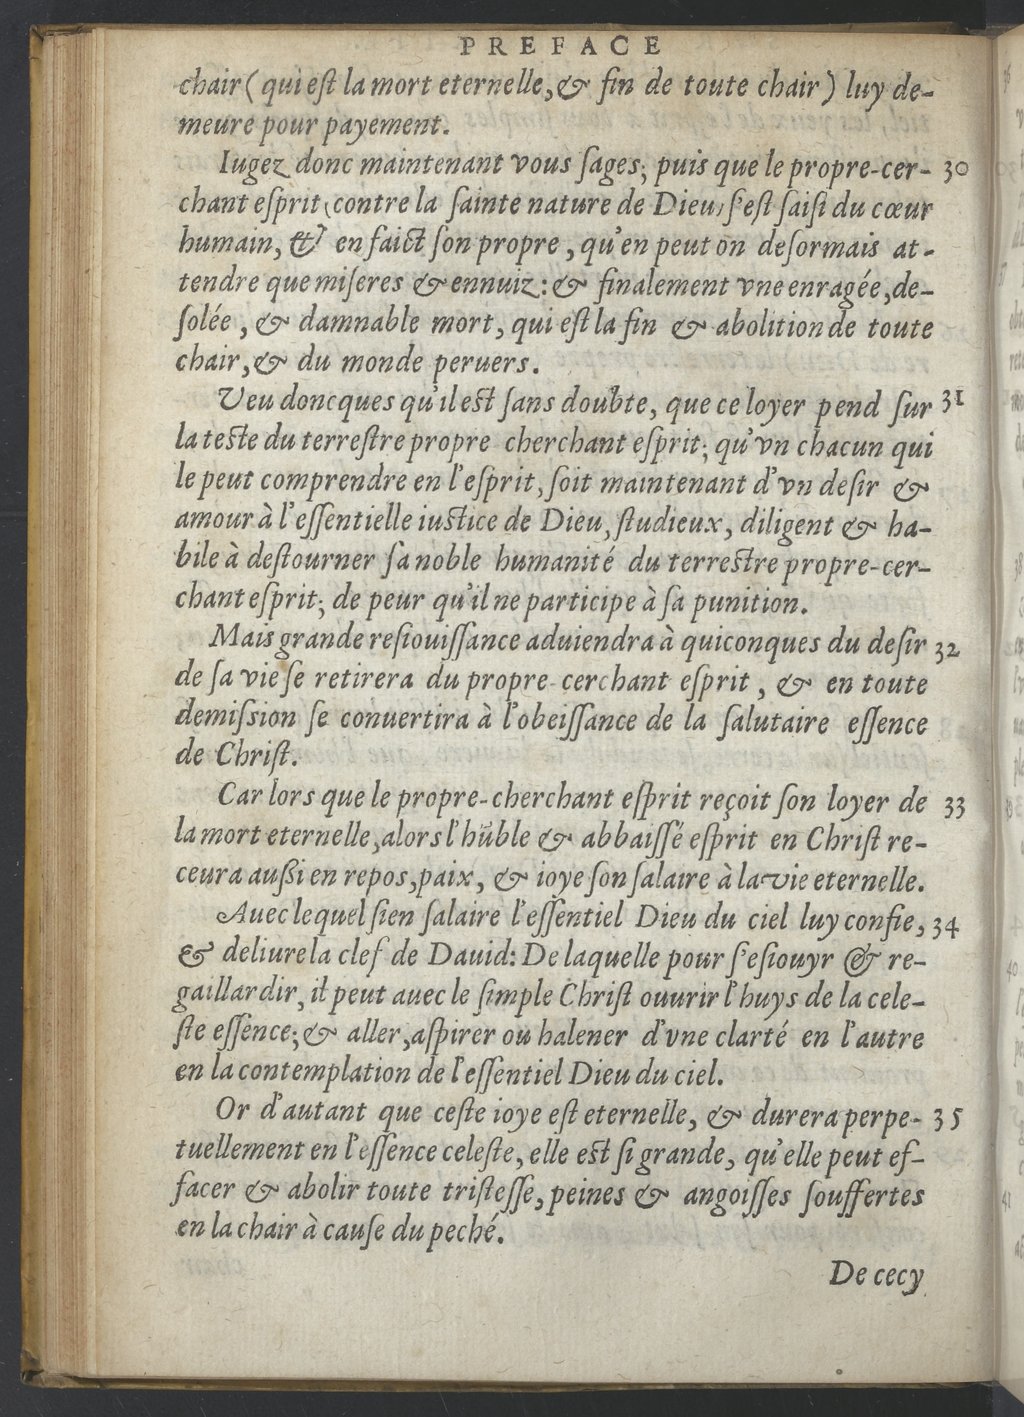 PREFACE
chair ( qui eſt la mort eternelle, & fin de toute chair ) luy de-
meure pour payement.
Iugez donc maintenant vous ſages; puis que le propre-cer- 30
chant eſprit (contre la ſainte nature de Dieu) ſ'eſt ſaiſi du cœur
humain, & en faict ſon propre, qu'en peut on deſormais at-
tendre que miſeres & ennuiz: & finalement vne enragée, de-
ſolée, & damnable mort, qui eſt la fin & abolition de toute
chair, & du monde peruers.
Veu doncques qu'il est ſans doubte, que ce loyer pend ſur 31
la teste du terreſtre propre cherchant eſprit; qu'vn chacun qui
le peut comprendre en l'eſprit, ſoit maintenant d'vn deſir &
amour à l'eſſentielle iustice de Dieu, ſtudieux, diligent & ha-
bile à deſtourner ſa noble humanité du terrestre propre-cer-
chant eſprit; de peur qu'il ne participe à ſa punition.
Mais grande reſiouiſſance aduiendra à quiconques du deſir 32
de ſa vie ſe retirera du propre-cerchant eſprit, & en toute
demiſsion ſe conuertira à l'obeiſſance de la ſalutaire eſſence
de Chriſt.
Car lors que le propre-cherchant eſprit reçoit ſon loyer de 33
la mort eternelle, alors l'hũble & abbaiſſé eſprit en Chriſt re-
ceura auſsi en repos, paix, & ioye ſon ſalaire à la vie eternelle.
Auec lequel ſien ſalaire l'eſſentiel Dieu du ciel luy confie, 34
& deliure la clef de Dauid: De laquelle pour ſ'eſiouyr & re-
gaillardir, il peut auec le ſimple Chriſt ouurir l'huys de la cele-
ſte eſſence; & aller, aſpirer ou halener d'vne clarté en l'autre
en la contemplation de l'eſſentiel Dieu du ciel.
Or d'autant que ceſte ioye eſt eternelle, & durera perpe- 35
tuellement en l'eſſence celeſte, elle est ſi grande, qu'elle peut ef-
facer & abolir toute triſteſſe, peines & angoiſſes ſouffertes
en la chair à cauſe du peché.
De cecy